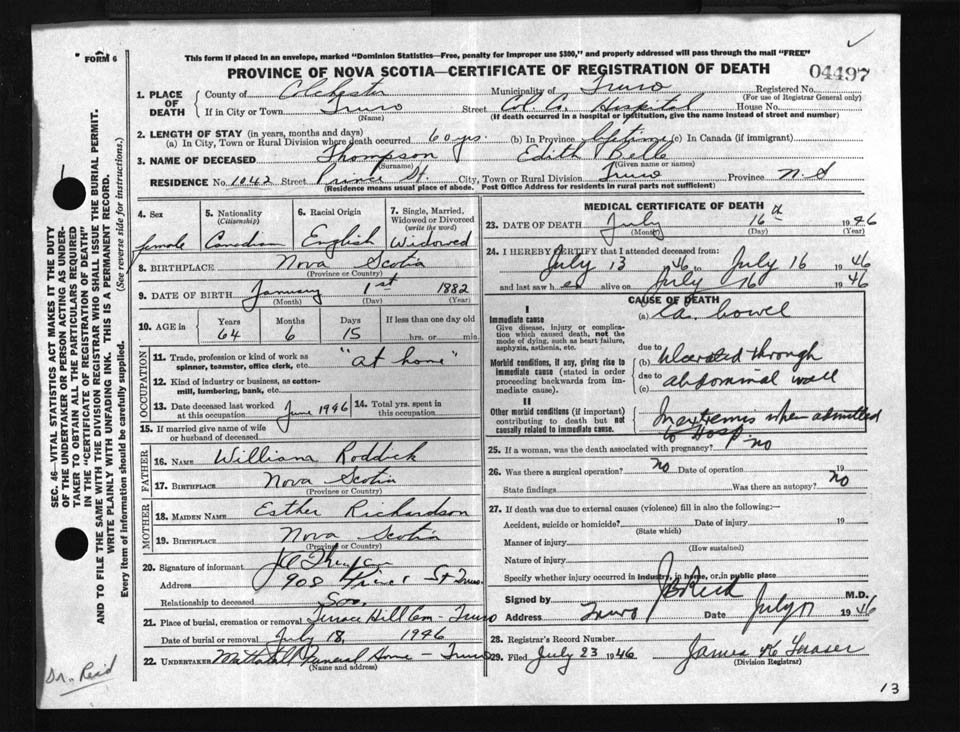 FORM 6
This form if placed in an envelope, marked "Dominion Statistics—Free, penalty for improper use $300," and properly addressed will pass through the mail "FREE"
PROVINCE OF NOVA SCOTIA—CERTIFICATE OF REGISTRATION OF DEATH
04497
1. PLACE OF DEATH
County of Colchester Municipality of Truro Registered No.
(For use of Registrar General only)
If in City or Town Truro Street Col. Co. Hospital House No.
(Name) (If death occurred in a hospital or institution, give the name instead of street and number)
2. LENGTH OF STAY (in years, months and days)
(a) In City, Town or Rural Division where death occurred 60 yrs. (b) In Province Lifetime (c) In Canada (if immigrant)
3. NAME OF DECEASED Thompson Edith Belle
(Surname) (Given name or names)
RESIDENCE No. 1042 Street Prince St. City, Town or Rural Division Truro Province N.S
(Residence means usual place of abode. Post Office Address for residents in rural parts not sufficient)
4. Sex 5. Nationality (Citizenship) 6. Racial Origin 7. Single, Married, Widowed or Divorced (write the word)
female Canadian English Widowed
8. BIRTHPLACE Nova Scotia
(Province or Country)
9. DATE OF BIRTH January 1st 1882
(Month) (Day) (Year)
10. AGE in Years Months Days If less than one day old
64 6 15 hrs. or min.
OCCUPATION
11. Trade, profession or kind of work as spinner, teamster, office clerk, etc. "at home"
12. Kind of industry or business, as cotton-mill, lumbering, bank, etc.
13. Date deceased last worked at this occupation June 1946 14. Total yrs. spent in this occupation
15. If married give name of wife or husband of deceased
FATHER
16. NAME William Roddick
17. BIRTHPLACE Nova Scotia
(Province or Country)
MOTHER
18. MAIDEN NAME Esther Richardson
19. BIRTHPLACE Nova Scotia
(Province or Country)
20. Signature of informant
Address 908 Prince St Truro.
Relationship to deceased Son.
21. Place of burial, cremation or removal Terrace Hill Cem - Truro
Date of burial or removal July 18, 1946
22. UNDERTAKER Mattatall Funeral Home - Truro
(Name and address)
MEDICAL CERTIFICATE OF DEATH
23. DATE OF DEATH July 16th 1946
(Month) (Day) (Year)
24. I HEREBY CERTIFY that I attended deceased from:
July 13 46 to July 16 1946
and last saw her alive on July 16 1946
CAUSE OF DEATH
I
Immediate cause
Give disease, injury or complication which caused death, not the mode of dying, such as heart failure, asphyxia, asthenia, etc.
(a) Ca. bowel
due to
Morbid conditions, if any, giving rise to immediate cause (stated in order proceeding backwards from immediate cause).
(b) Ulcerated through
due to
(c) abdominal wall
II
Other morbid conditions (if important) contributing to death but not causally related to immediate cause.
when admitted
to Hosp
25. If a woman, was the death associated with pregnancy? no
26. Was there a surgical operation? no Date of operation 19
State findings Was there an autopsy? no
27. If death was due to external causes (violence) fill in also the following:—
Accident, suicide or homicide? Date of injury 19
(State which)
Manner of injury
(How sustained)
Nature of injury
Specify whether injury occurred in industry, in home, or in public place
Signed by J B Reid M.D.
Address Truro Date July 17 1946
28. Registrar's Record Number
29. Filed July 23 1946 James K Fraser
(Division Registrar)
SEC. 46—VITAL STATISTICS ACT MAKES IT THE DUTY
OF THE UNDERTAKER OR PERSON ACTING AS UNDER-
TAKER TO OBTAIN ALL THE PARTICULARS REQUIRED
IN THE "CERTIFICATE OF REGISTRATION OF DEATH"
AND TO FILE THE SAME WITH THE DIVISION REGISTRAR WHO SHALL ISSUE THE BURIAL PERMIT.
WRITE PLAINLY WITH UNFADING INK. THIS IS A PERMANENT RECORD.
Every item of information should be carefully supplied. (See reverse side for instructions.)
Dr. Reid
13